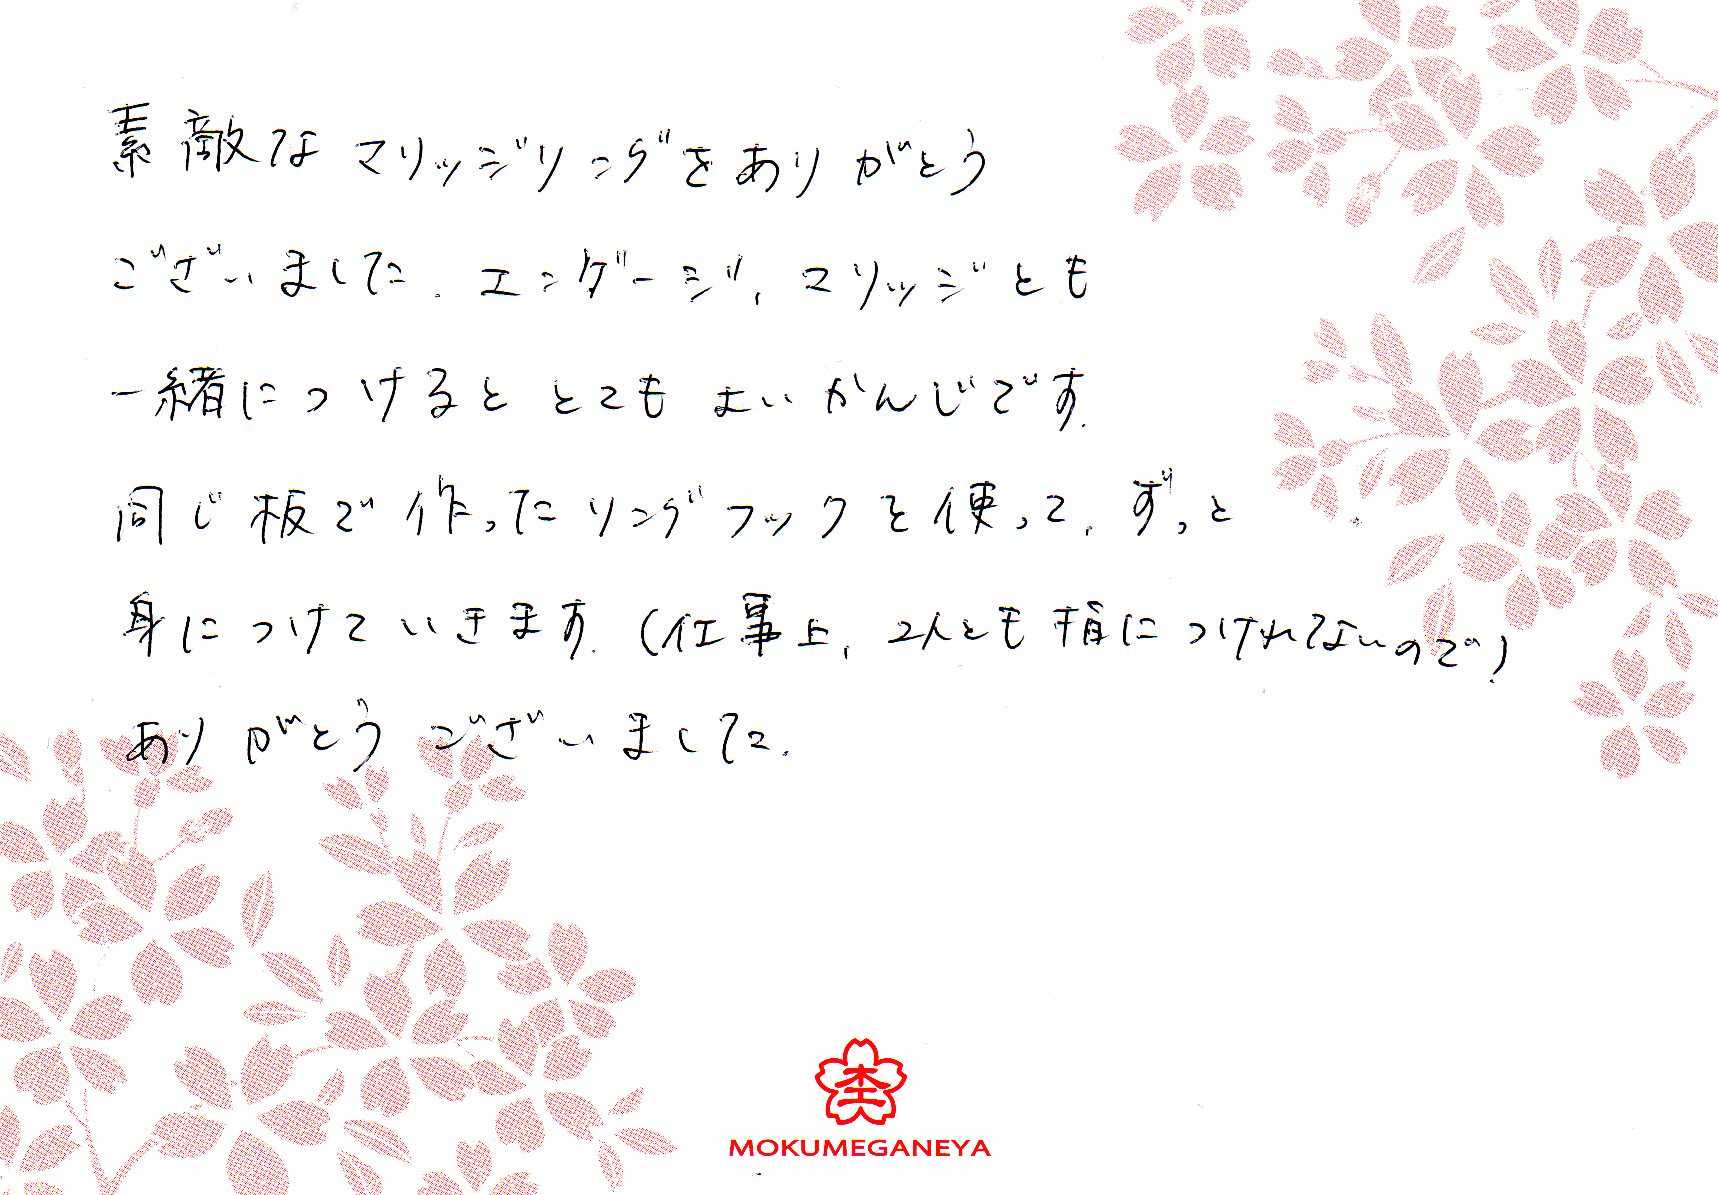 素敵なマリッジリングをありがとう
ございました. エンゲージ, マリッジとも
一緒につけるととてもよいかんじです.
同じ板で作ったリングフックを使って, ずっと
身につけていきます. (仕事上, 2人とも指につけれてないので)
ありがとうございました.
杢
MOKUMEGANEYA